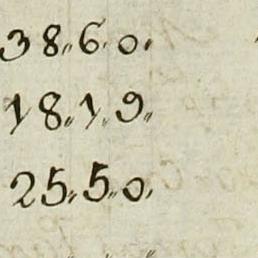 38„6„0„
18„1„9„
25„5„0„